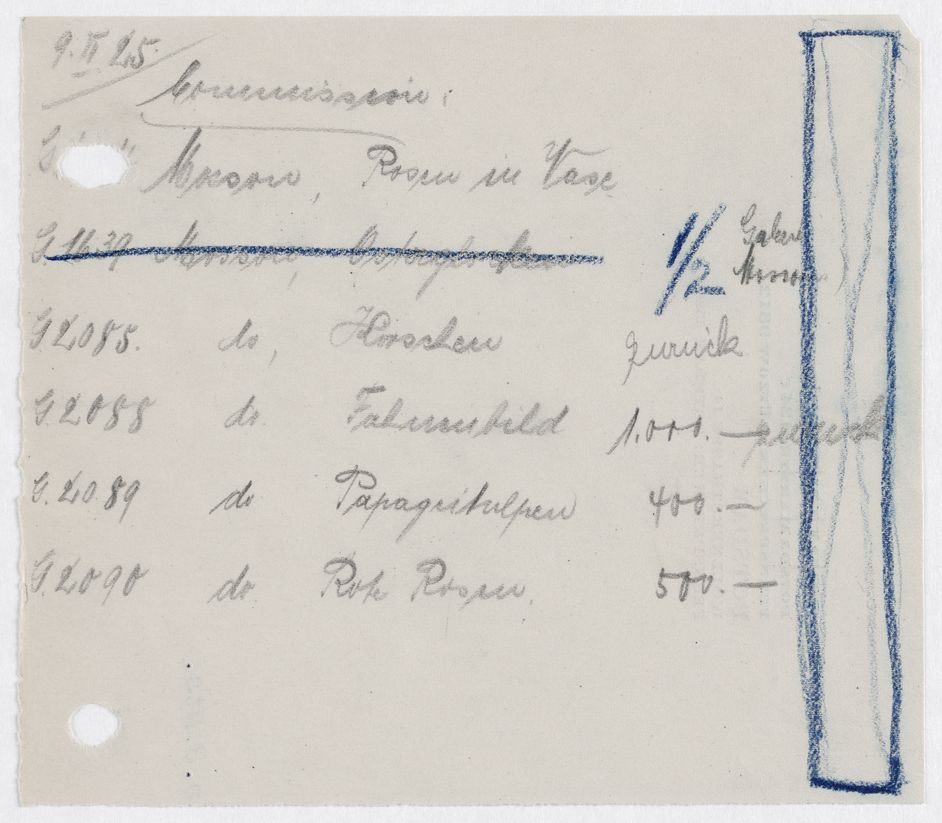 9. II 25.
Commission:
G Mosson, Rosen in Vase
G. 1639 Mosson, Osterglocken
1/2 Galerie Mosson
G. 2085. do, Kirschen zurück
G. 2088 do. Fahnenbild 1.000.— zurück
G. 2089 do Papageitulpen 400.—
G. 2090 do Rote Rosen. 500.—